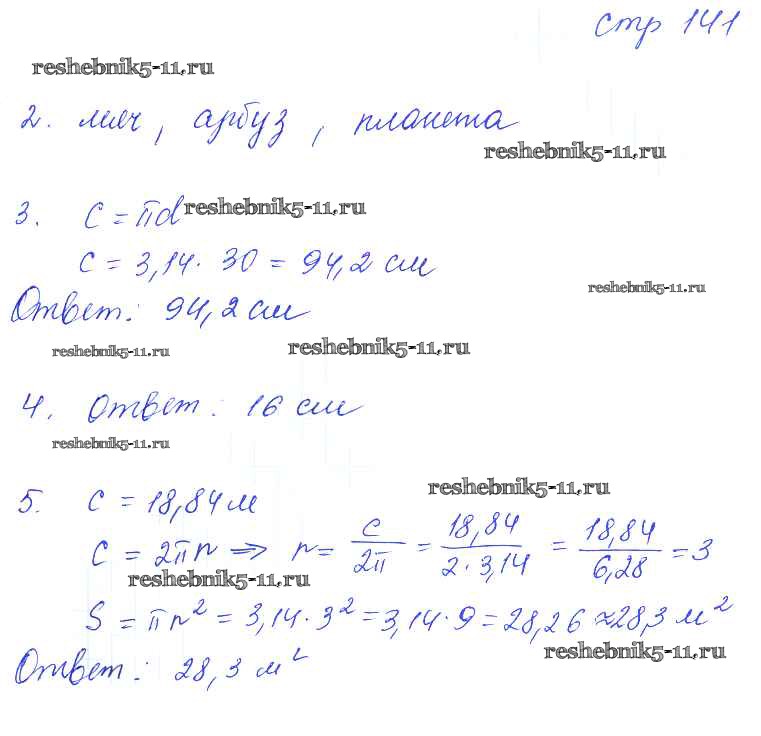 стр 141
reshebnik5-11.ru
2. мяч, арбуз, планета
reshebnik5-11.ru
3. C = πd reshebnik5-11.ru
C = 3,14 · 30 = 94,2 см
reshebnik5-11.ru
Ответ: 94,2 см
reshebnik5-11.ru reshebnik5-11.ru
4. Ответ: 16 см
reshebnik5-11.ru
reshebnik5-11.ru
5. C = 18,84 м
C = 2πr ⇒ r = C/2π = 18,84/2·3,14 = 18,84/6,28 = 3
reshebnik5-11.ru
S = πr² = 3,14 · 3² = 3,14 · 9 = 28,26 ≈ 28,3 м²
reshebnik5-11.ru
Ответ: 28,3 м²